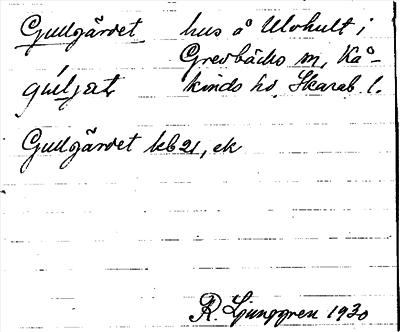 Gullgärdet hus å Ulvhult i
Grevbäcks sn, Kå-
gúljaṭ kinds hd, Skarab. l.
Gullgärdet kb 21, ek
R. Ljunggren 1930